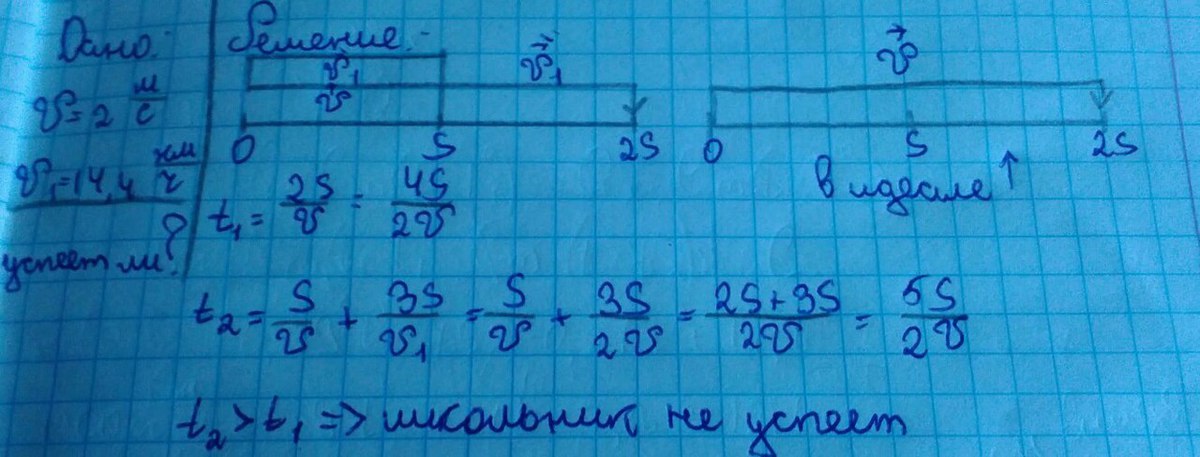 Дано:
v = 2 м/с
v₁ = 14,4 км/ч
успеет ли?
Решение:
v₁ v⃗₁ v⃗
v
0 S 2S 0 S 2S
в идеале ↑
t₁ = 2S/v = 4S/2v
t₂ = S/v + 3S/v₁ = S/v + 3S/2v = 2S+3S/2v = 5S/2v
t₂ > t₁ => школьник не успеет